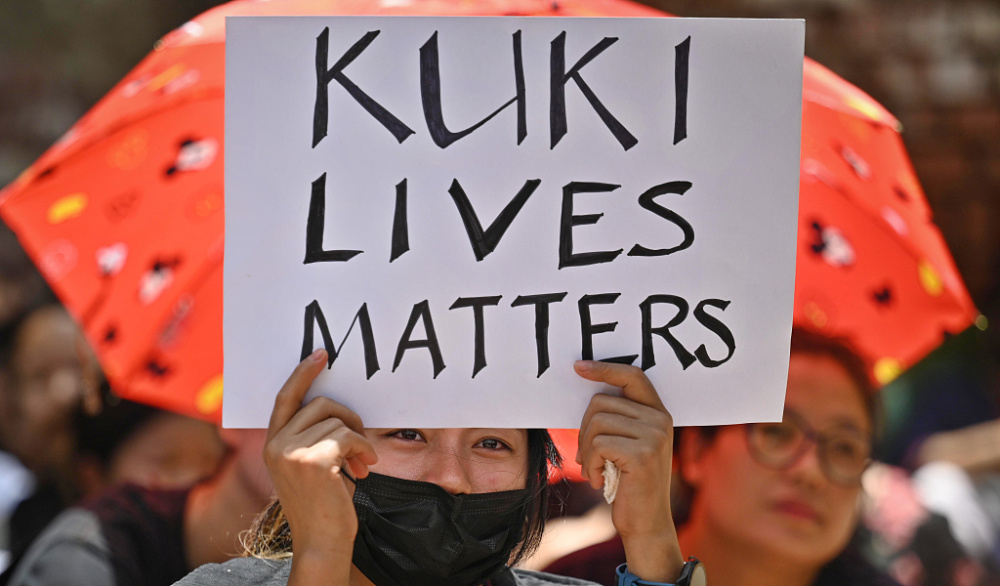 KUKI
LIVES
MATTERS